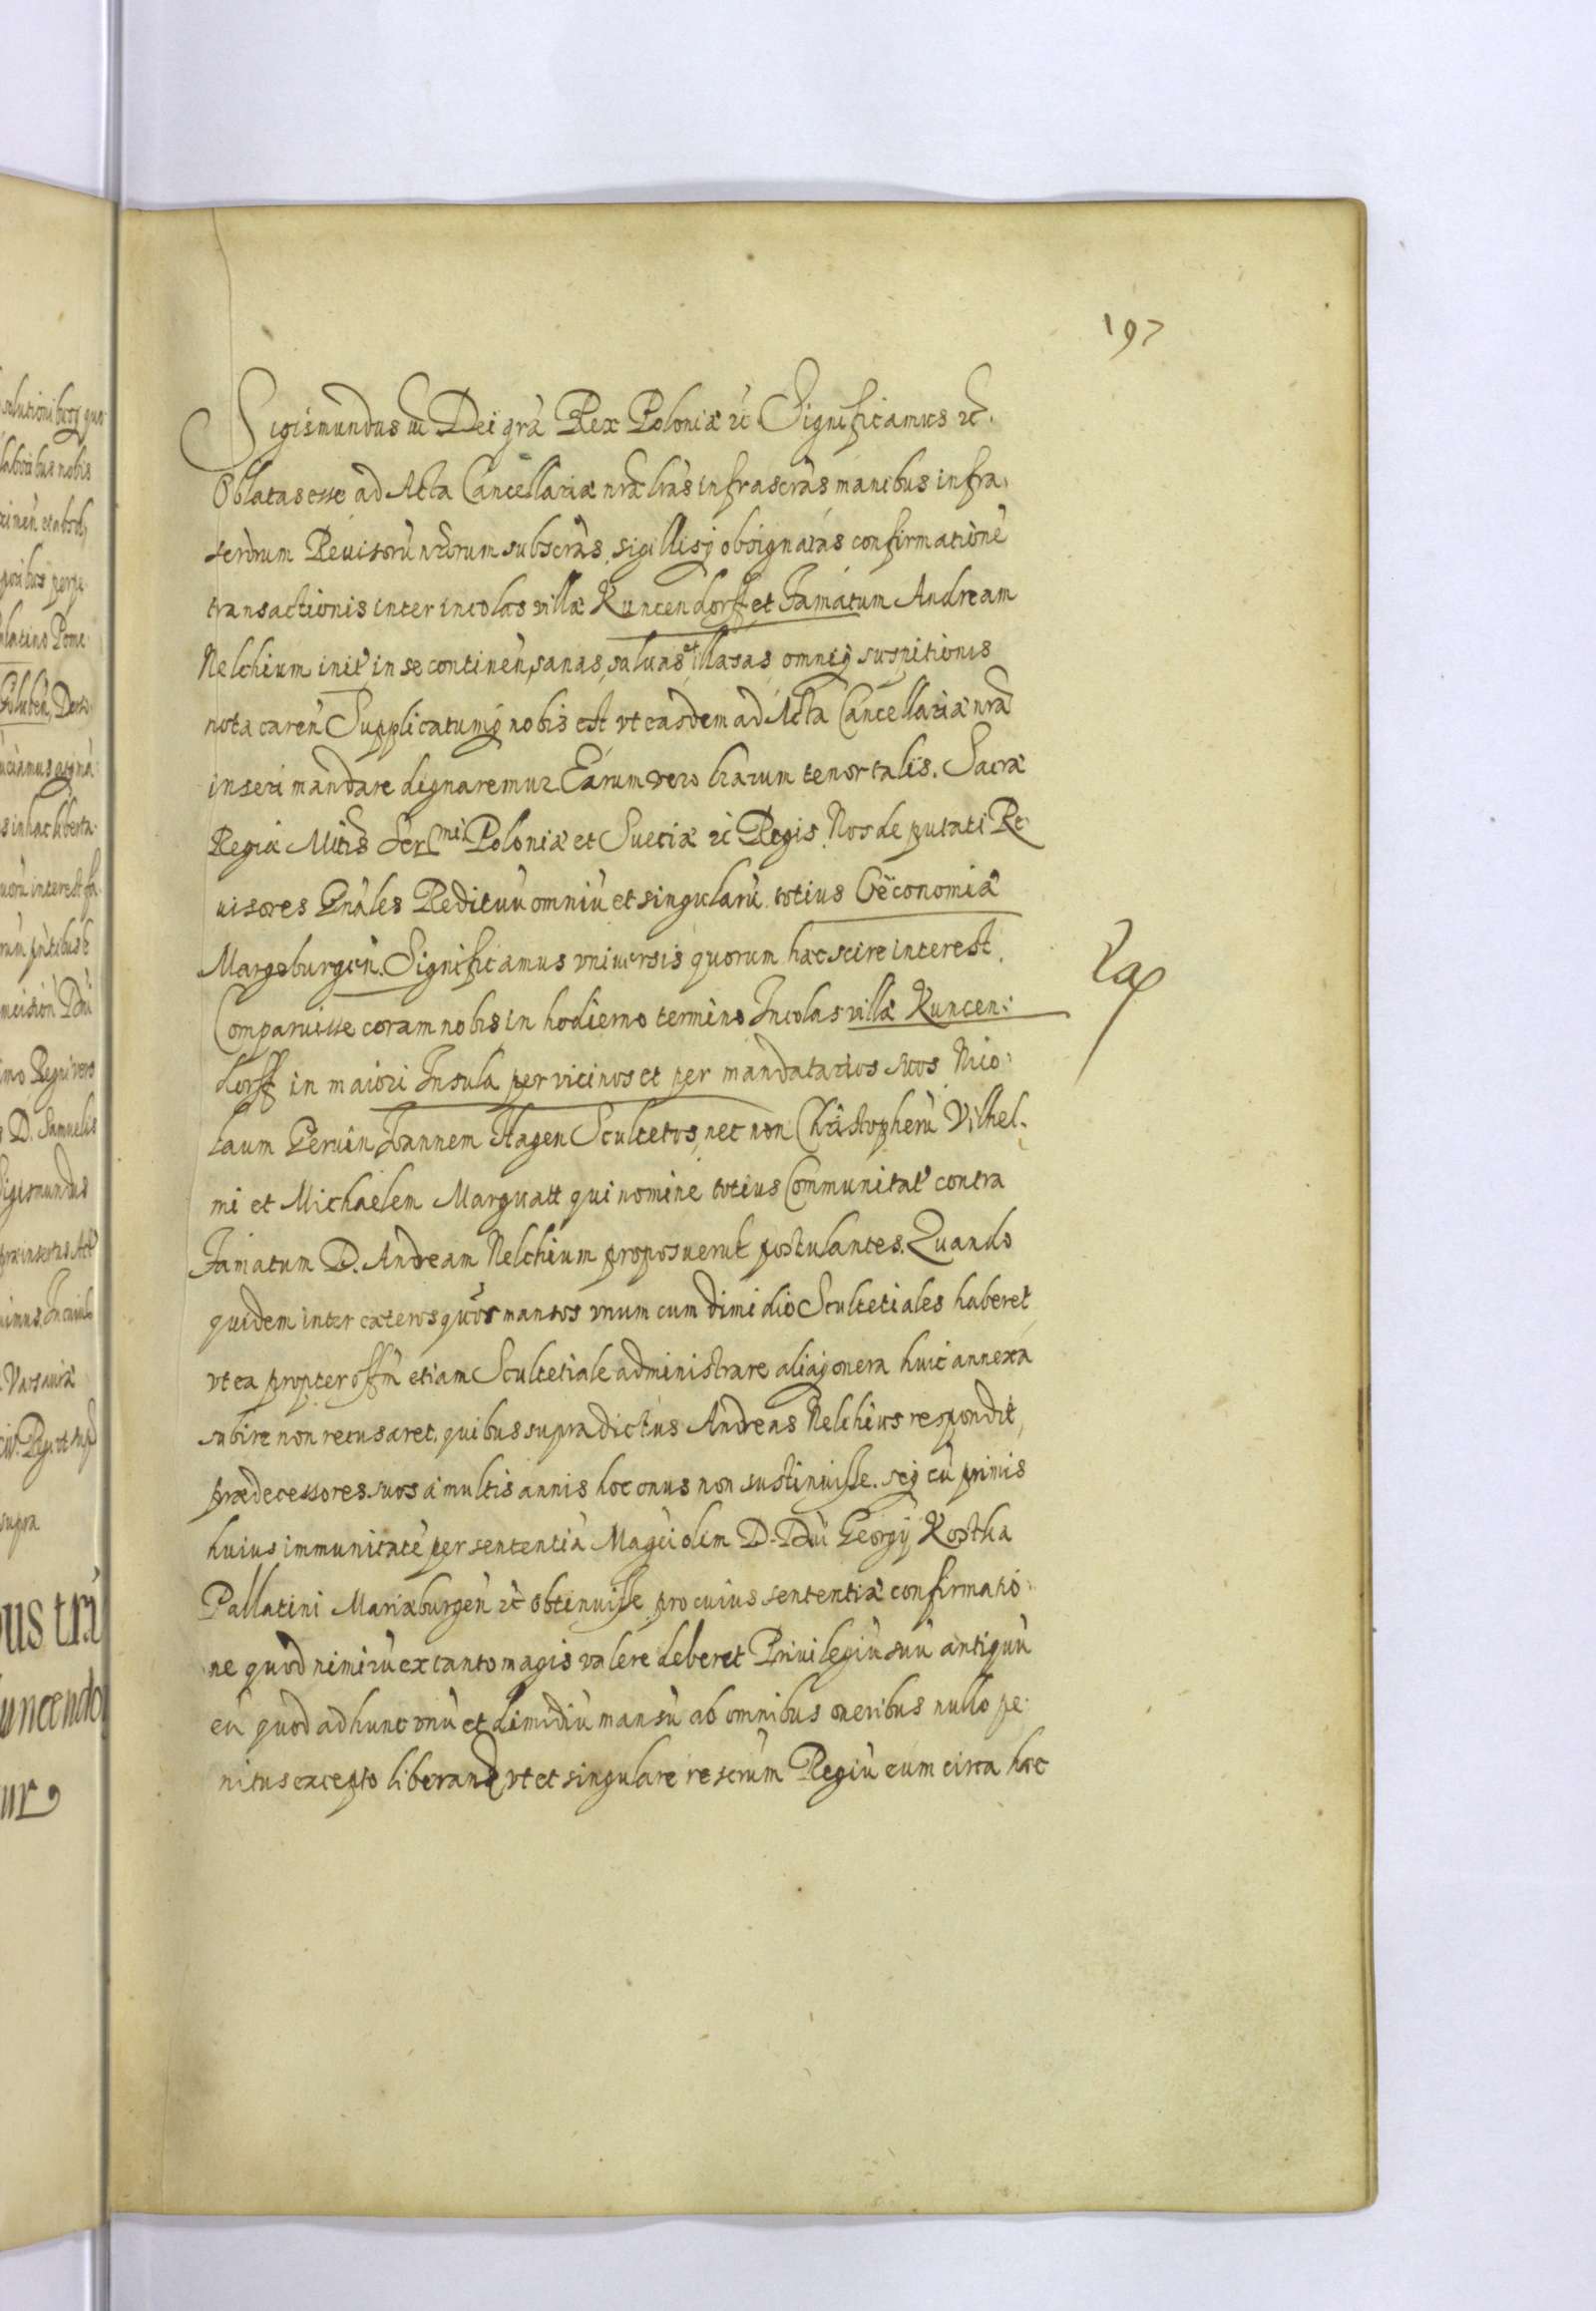 197
Sigismundus III Dei gra Rex Poloniæ etc Significamus etc.
Oblatas esse ad Acta Cancellariæ nræ lras infrascras manibus infra:
scrorum Reuisoru nrorum subscras, sigillisq obsignatas confirmatione
transactionis inter incolas villæ Kuncendorff et Famatum Andream
Nelchium init in se continen, sanas, saluas et illæsas omniq suspitionis
nota caren Supplicatumq nobis est vt easdem ad Acta Cancellariæ nræ
inseri mandare dignaremur Earum vero lrarum tenor talis. Sacræ
Regiæ Mttis Sermi Poloniæ et Sueciæ etc Regis. Nos deputati Re
uisores Gnales Redituu omniu et singularu totius Oeconomiæ
Margeburgen. Significamus vniuersis quorum hæc scire interest.
Comparuisse coram nobis in hodierno termino Incolas villæ Kuncen:
dorff in maiori Insula per vicinos et per mandatarios suos Nico:
laum Geruin Joannem Hagen Scultetos, nec non Christopheru Vilhel:
mi et Michaelem Marguatt qui nomine totius Communitat contra
Famatum D. Andream Nelchium proposuerut postulantes. Quando
quidem inter cæteros quos mansos vnum cum dimidio Scultetiales haberet
vt ea propter offm etiam Scultetiale administrare aliaq onera huic annexa
subire non recusaret. quibus supradictus Andreas Nelchius respondit,
prædecessores suos a multis annis hoc onus non sustinuisse. seq cu primis
huius immunitate per sententia Magci olim D. Dni Georgij Kostka
Pallatini Mariæburgen etc obtinuisse pro cuius sententiæ confirmatio:
ne quod nimiru ex tanto magis valere deberet Priuilegiu suu antiquu
eu quod ad hunc vnu et dimidiu mansu ab omnibus oneribus nullo pe:
nitus excepto liberand vt et singulare rescrum Regiu eum circa hæc